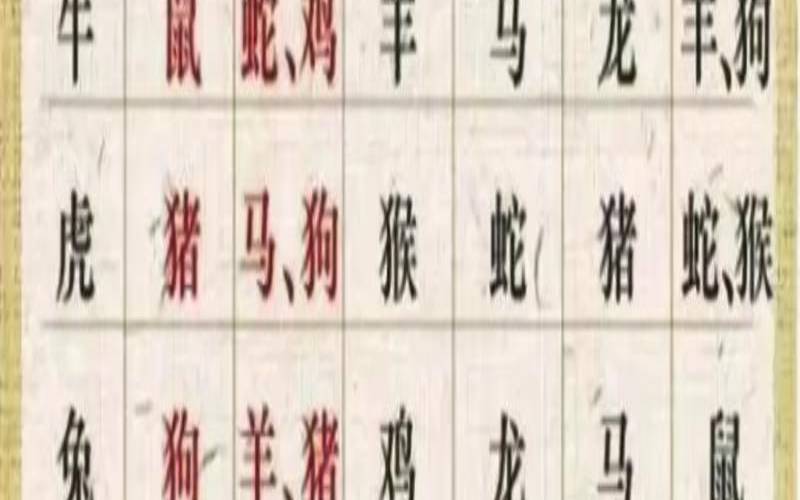 牛 鼠 蛇、鸡 羊 马 龙 羊、狗
虎 猪 马、狗 猴 蛇 猪 蛇、猴
兔 狗 羊、猪 鸡 龙 马 鼠